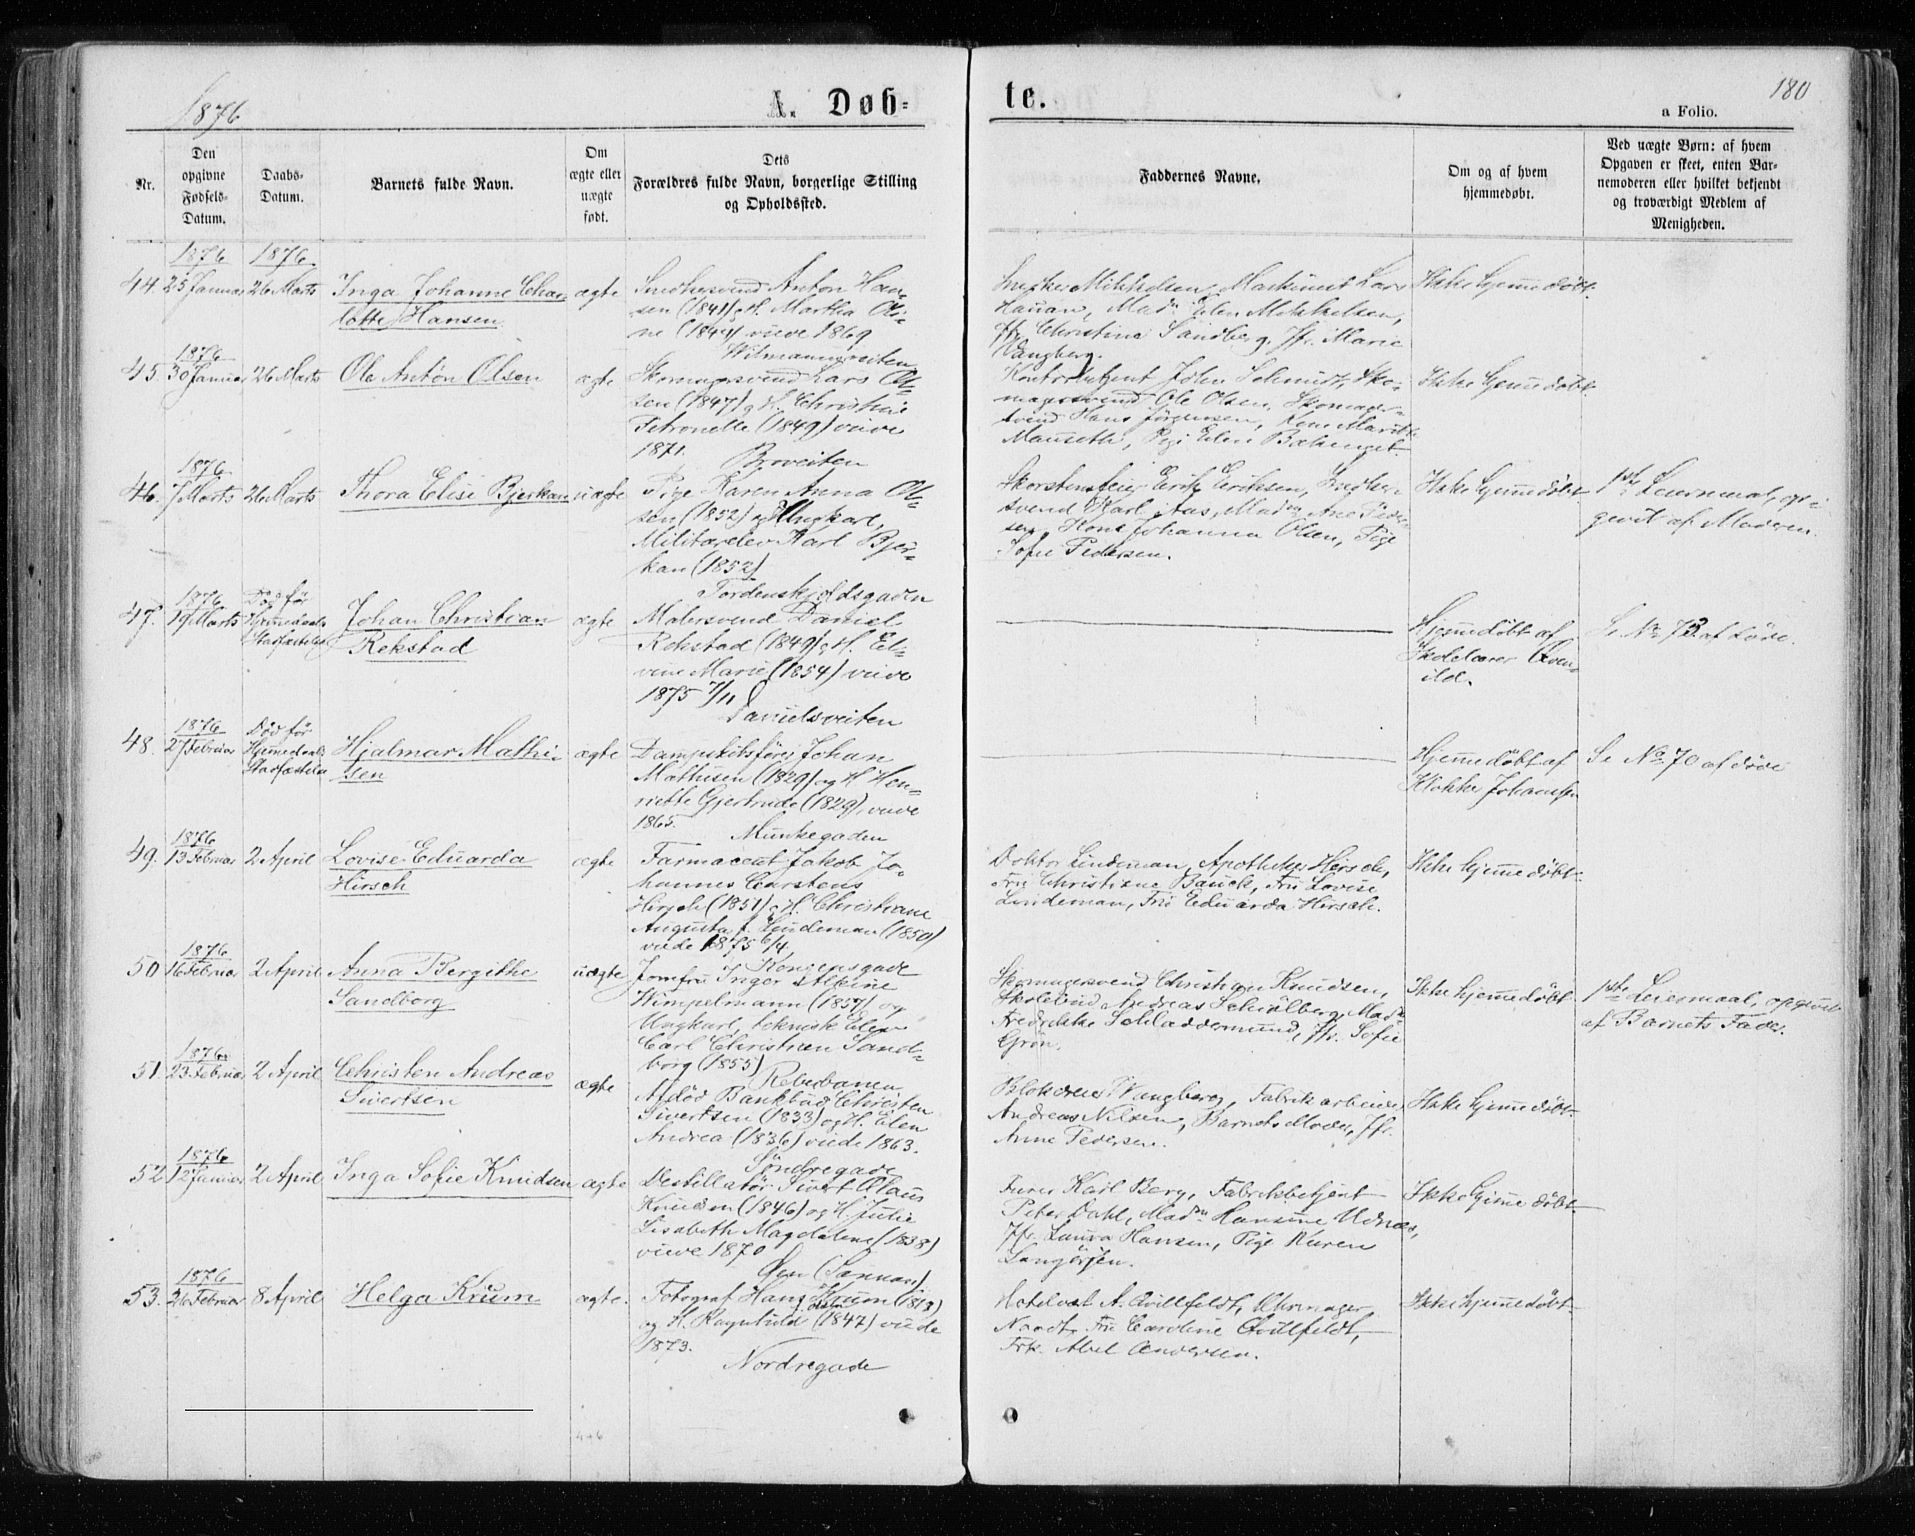 1876
A. Døb-
te.
180
a Folio.
Nr.
Den opgivne Fødsels-Datum.
Daabs-Datum.
Barnets fulde Navn.
Om ægte eller uægte født.
Dets Forældres fulde Navn, borgerlige Stilling og Opholdssted.
Faddernes Navne.
Om og af hvem hjemmedøbt.
Ved uægte Børn: af hvem Opgaven er skeet, enten Barnemoderen eller hvilket bekjendt og troværdigt Medlem af Menigheden.
1876 1876.
44. 25 Januar 26 Marts Inga Johanne Char-
lotte Hansen
ægte
Snedkersvend Anton Han-
sen (1841) og H. Martha Oli-
ne (1844) viede 1869
Snedker Mikkelsen,
Mad. Elen Mikkelsen,
Jfr. Christine Sandberg, Jfr. Marie
Vangberg.
Ikke hjemmedøbt.
1876
45. 30 Januar 26 Marts Ole Anton Olsen
ægte
Skomagersvend Lars Ol-
sen (1847) og H. Christine
Petronelle (1849) viede
1871.
John Schmidt, Sko-
magersvend Ole Olsen, Skomager-
svend Hans Jørgensen, Kone Marit
Mauseth, Pige Elen
Ikke hjemmedøbt.
1876
46. 7 Marts 26 Marts Thora Elise Bjerkan
uægte
Broveiten
Pige Karen Anna Ol-
sen (1852) og Ungkarl,
Militærelev Karl Bjer-
kan (1852)
Skorstensfeier Erik Eriksen, Snedker-
svend Karl Aas, Mad. Ane Peder-
sen, Kone Johanna Olsen, Pige
Sofie Pedersen.
Ikke hjemmedøbt
1ste Leiermaal, op-
givet af Moderen.
1876
47. 19 Marts
Død før
Hjemmedaabs
Stadfæstelse
Johan Christian
Rekstad
ægte
Tordenskjoldsgaden
Malersvend Daniel
Rekstad (1849) og H. El-
vine Marie (1854) viede
1875 7/11
Hjemmedøbt af
Skolelærer
Se No 73 af døde.
1876
48. 27 Februar
Død før
Hjemmedaabs
Stadfæstelse
Hjalmar Mathi-
sen
ægte
Danielsveiten
Dampskibsfører Johan
Mathisen (1829) og H. Hen-
riette Gjertrude (1829), viede
1865.
Hjemmedøbt af
Klokker Johansen
Se No 70 af døde
1876
49. 13 Februar 2 April Lovise Eduarda
Hirsch
ægte
Munkegaden
Farmaceut Jakob Jo-
hannes Carstens
Hirsch (1851) og H. Christiane
Augusta f. Lindeman (1850)
viede 1875 6/4.
Doktor Lindeman, Apotheker Hirsch,
Fru Christiane Bauck, Fru Lovise
Lindeman, Fru Eduarda Hirsch.
Ikke hjemmedøbt.
1876
50 16 Februar 2 April Anna Bergithe
Sandborg
uægte
Kongensgade
Jomfru Inger Alexine
Wimpelmann (1857) og
Ungkarl, teknisk Elev
Carl Christian Sand-
borg (1855)
Skomagersvend Christian Knudsen,
Andreas Schiølberg, Mad.
Fredrikke Schladdermund, Jfr. Sofie
Grøn.
Ikke hjemmedøbt.
1ste Leiermaal, opgivet
af Barnets Fader.
1876
51. 23 Februar 2 April Christen Andreas
Sivertsen
ægte
Reberbanen
Afdød Bankbud Christen
Sivertsen (1833) og H. Elen
Andrea (1836) viede 1863.
Vangberg, Fabrikarbeider
Andreas Nilsen, Barnets Moder, Jfr.
Anne Pedersen.
Ikke hjemmedøbt.
1876
52 12 Januar 2 April Inga Sofie Knudsen
ægte
Søndregade
Destillatør Sivert Olaus
Knudsen (1846) og H. Julie
Lisabeth Magdalene (1838)
viede 1870
Furer Karl Berg, Fabrikbetjent
Peter Dahl, Mad. Hansine Udnæs,
Jfr. Laura Hansen, Pige Karen
Langørjen.
Ikke hjemmedøbt
1876
53. 26 Februar 8 April Helga Krum
ægte.
Fotograf Hans Krum (1813)
og H. Ragnhild (1847) viede
1873.
Nordregade
Hotelvært A. Qvillfeldt, Uhrmager
Fru Caroline Qvillfeldt,
Frk. Abel Andersen.
Ikke hjemmedøbt